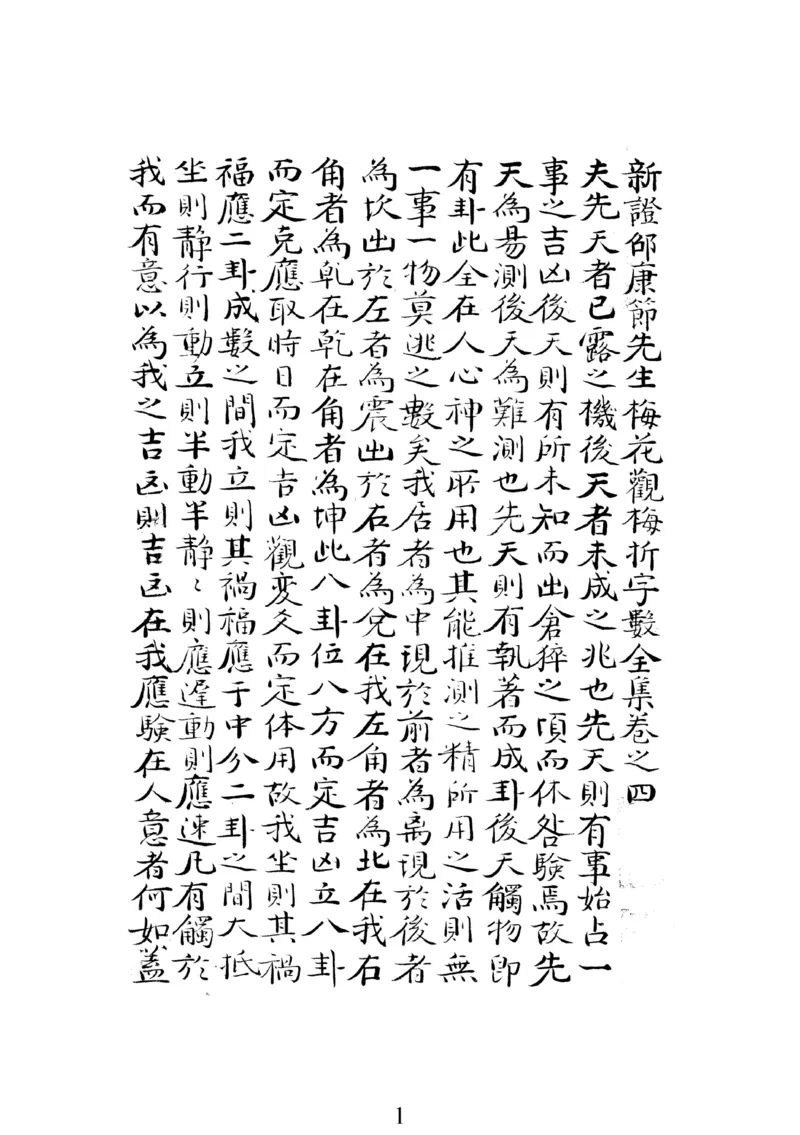 新證邵康節先生梅花觀梅折字數全集卷之四
夫先天者已露之機後天者未成之兆也先天則有事始占一
事之吉凶後天則有所未知而出倉猝之頃而休咎驗焉故先
天為易測後天為難測也先天則有執著而成卦後天觸物即
有卦此全在人心神之所用也其能推測之精所用之活則無
一事一物莫逃之數矣我居者為中現於前者為离現於後者
為坎出於左者為震出於右者為兌在我左角者為北在我右
角者為乹在乾在角者為坤此八卦位八方而定吉凶立八卦
而定克應取時日而定吉凶觀変爻而定体用故我坐則其禍
福應二卦成數之間我立則其禍福應于中分二卦之間大抵
坐則靜行則動立則半動半靜〻則應遲動則應速凡有觸於
我而有意以為我之吉凶則吉凶在我應驗在人意者何如蓋
1